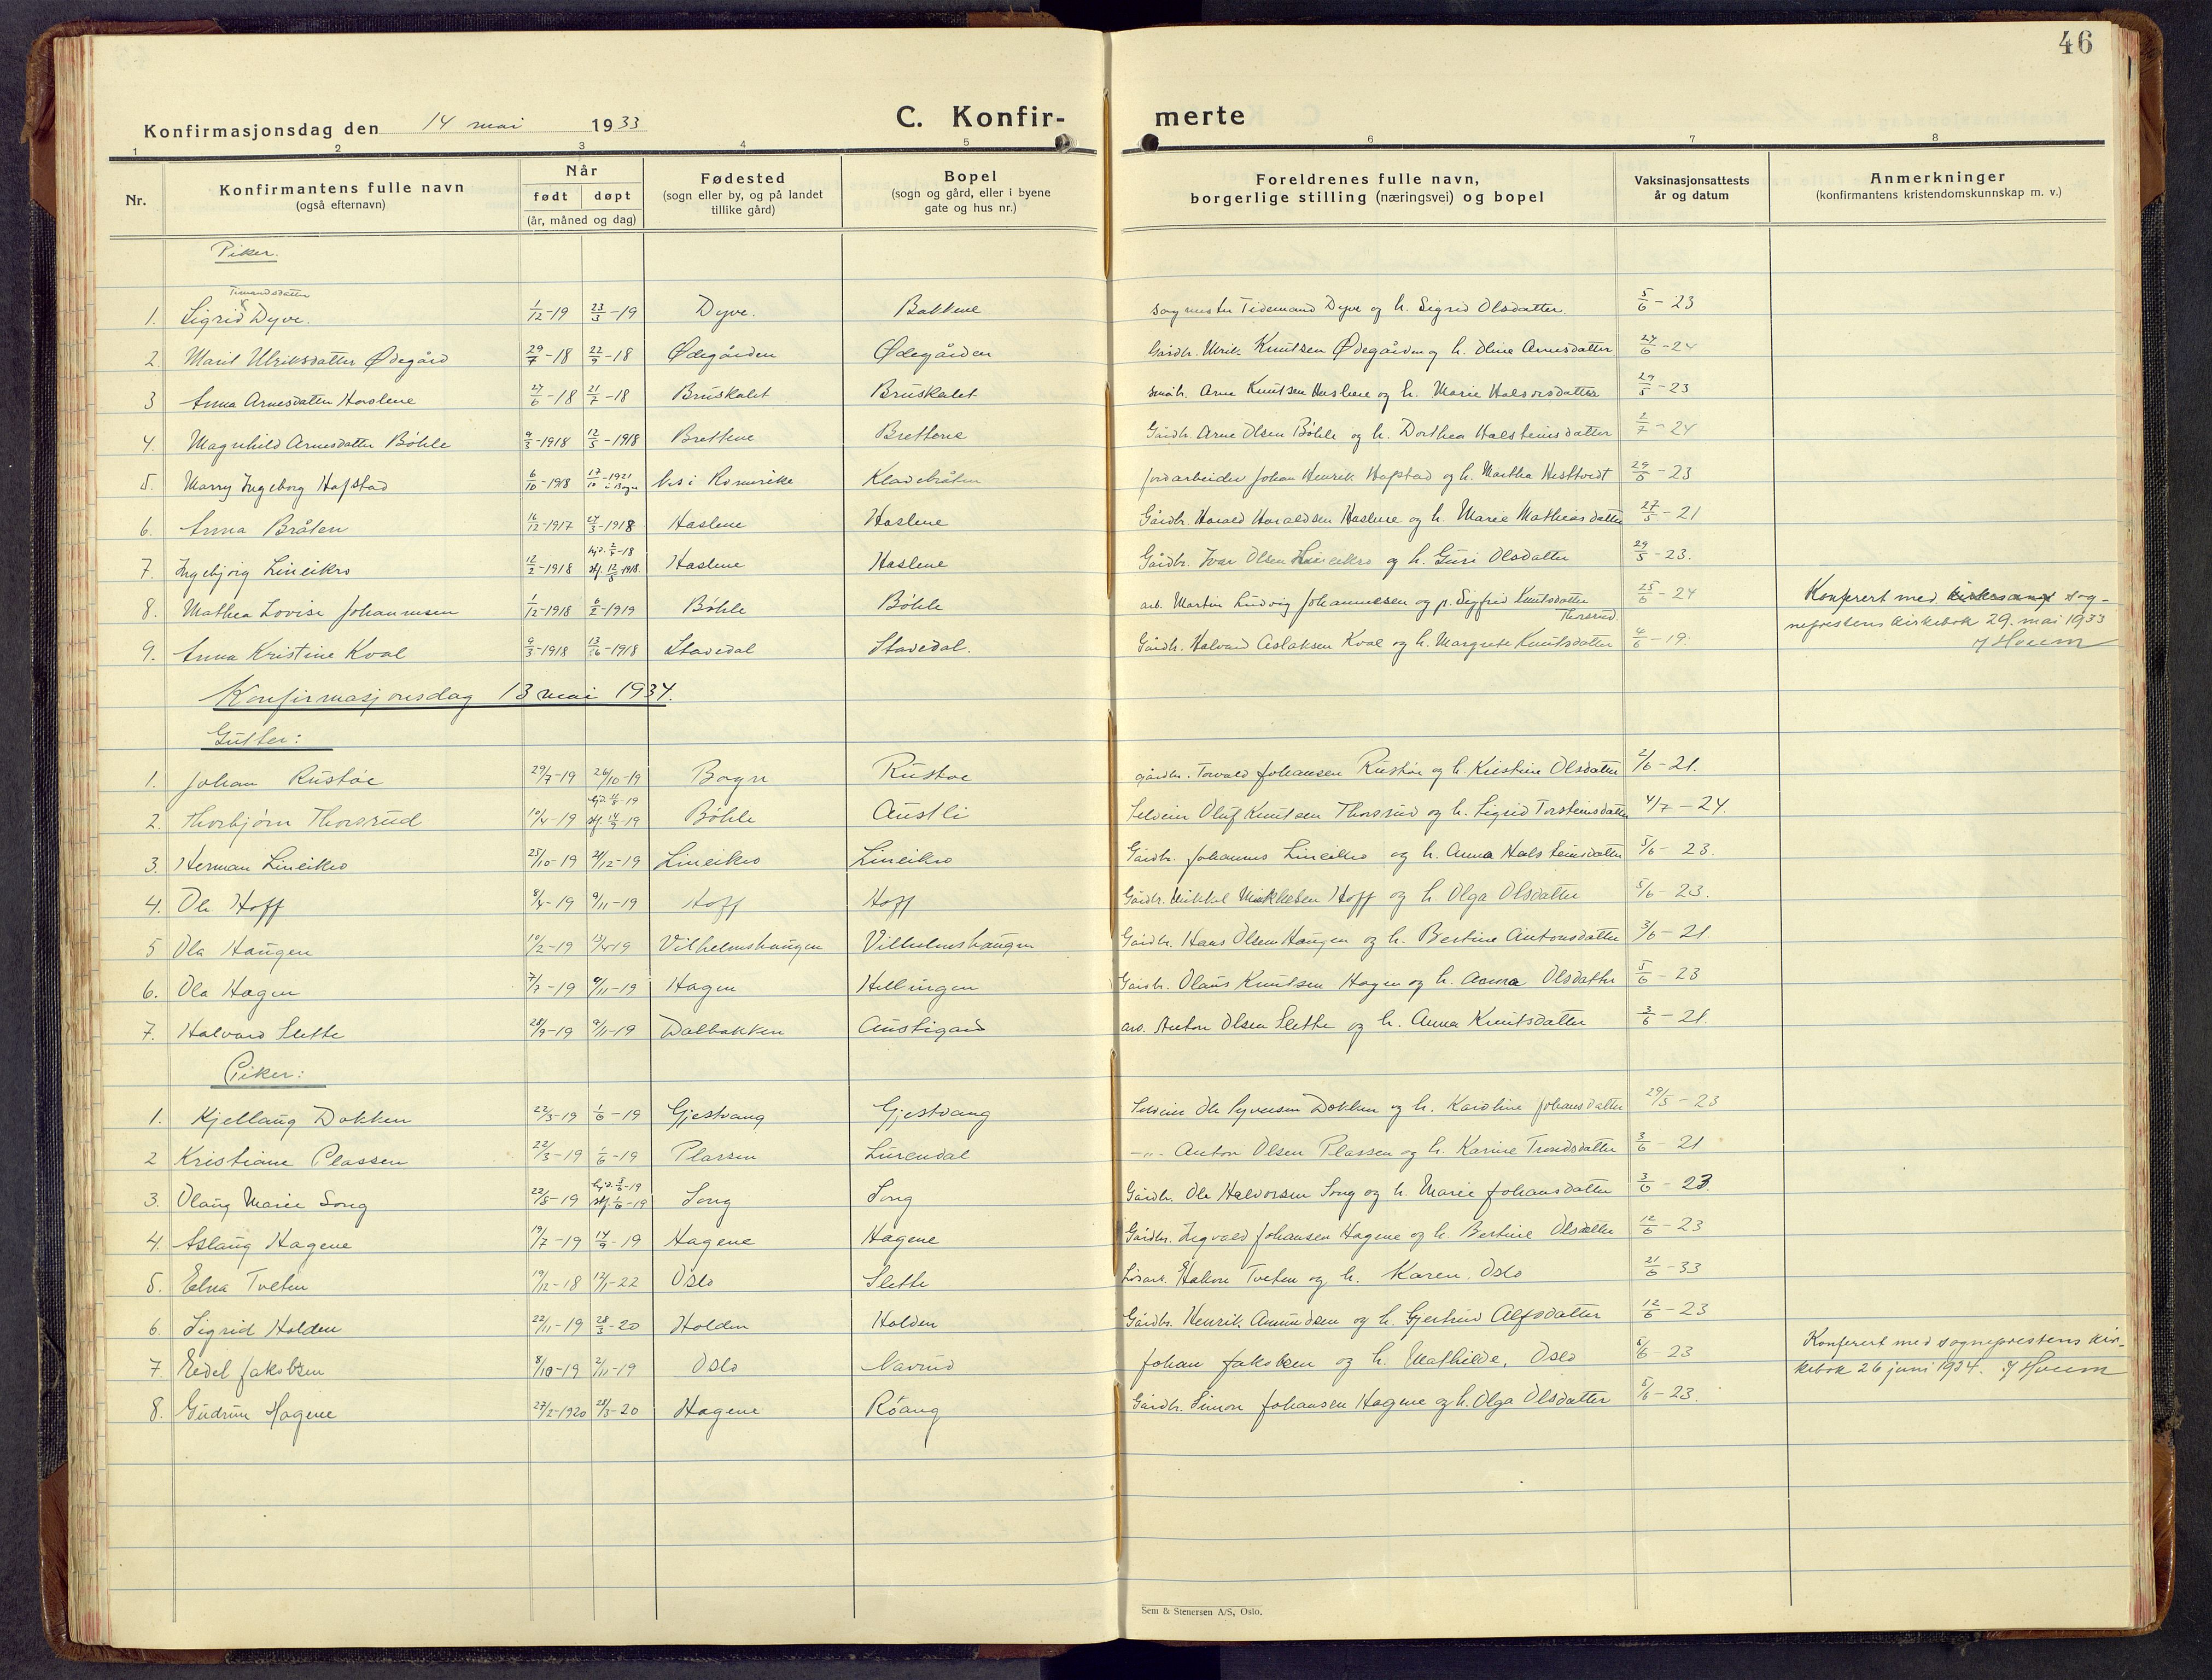 46
Konfirmasjonsdag den 14 mai 1933
C. Konfir- merte
1 2 3 4 5 6 7 8
Nr. Konfirmantens fulle navn (også efternavn) Når født døpt (år, måned og dag) Fødested (sogn eller by, og på landet tillike gård) Bopel (sogn og gård, eller i byene gate og hus nr.) Foreldrenes fulle navn, borgerlige stilling (næringsvei) og bopel Vaksinasjonsattests år og datum Anmerkninger (konfirmantens kristendomskunnskap m. v.)
Piker.
Timandsdatter
1. Sigrid Dyve. 1/12-19 23/3-19 Dyve. Bakkene Tidemand Dyve og h. Sigrid Olsdatter. 5/6-23
2. Marit Ulriksdatter Ødegård 29/7-18 22/9-18 Ødegården Ødegården Gårdbr. Ulrik Knutsen Ødegården og h. Oline Arnesdatter 24/6-24
3 Anna Arnesdatter Haslene 27/6-18 21/7-18 Bruskalet Bruskalet småbr. Arne Knutsen Haslene og h. Marie Halvorsdatter 29/5-23
4. Magnhild Arnesdatter Bøhle 9/3-1918 12/5-1918 Brettene Brettene Gårdbr. Arne Olsen Bøhle og h. Dorthea Halsteinsdatter 2/7-24
5. Marry Ingeborg Hafstad 6/10-1918 17/10-1921 i Bagn Nes i Romerike Kladebråten jordarbeider Johan Henrik Hafstad og h. Martha Hesttvedt 29/5-23
6. Anna Bråten 16/12-1917 24/3-1918 Haslene Haslene Gårdbr. Harald Haraldsen Haslene og h. Marie Mathiasdatter 27/5-21
7. Ingebjørg Lineikro 12/2-1918 hjd. 2/4-18 stf. 12/5 1918. Haslene Haslene Gårdbr. Ivar Olsen Lineikro og h. Guri Olsdatter 29/5-23.
8. Mathea Lovise Johannesen 1/12-1918 6/2-1919 Bøhle Bøhle arb. Martin Ludvig Johannesen og p. Sigfrid Knutsdatter Thorsrud. 25/6-24 Konferert med sog-
9. Anna Kristine Kval 9/3-1918 13/6-1918 Stavedal Stavedal. Gårdbr. Halvard Aslaksen Kval og h. Margrete Knutsdatter 4/6-19. neprestens kirkebok 29. mai 1933
J Hveem
Konfirmasjonsdag 13 mai 1934.
Gutter:
1. Johan Rustøe 29/7-19 26/10-19 Bagn Rustøe gårdbr. Torvald Johansen Rustøe og h. Kristine Olsdatter 2/6-21.
2. Thorbjørn Thorsrud 10/4-19 hjd. 11/5-19 stf. 14/9-19 Bøhle Austli Selveier Oluf Knutsen Thorsrud og h. Sigrid Torsteinsdatter 4/7-24.
3. Herman Lineikro 25/10-19 21/12-19 Lineikro Lineikro Gårdbr. Johannes Lineikro og h. Anna Halsteinsdatter 5/6-23.
4. Ole Hoff 8/4-19 9/11-19 Hoff Hoff Gårdbr. Mikkel Mikkelsen Hoff og h Olga Olsdatter 5/6-23.
5 Ola Haugen 10/2-19 13/4-19 Vilhelmshaugen Vilhelmshaugen Gårdbr. Hans Olsen Haugen og h. Bertine Antonsdatter 3/6-21.
6. Ola Hagen 7/7-19 9/11-19 Hagen Hellingen Gårdbr. Olaus Knutsen Hagen og h. Anna Olsdatter 5/6-23
7. Halvard Slette 28/9-19 9/11-19 Dalbakken Austigard arb. Anton Olsen Slette og h. Anna Knutsdatter 3/6-21.
Piker:
1. Kjellaug Dokken 22/3-19 1/6-19 Gjestvang Gjestvang Selveier Ole Syversen Dokken og h. Karoline Johansdatter 29/5-23
2 Kristiane Plassen 22/3-19 1/6-19 Plassen Linendal -"- Anton Olsen Plassen og h. Karine Trondsdatter 3/6-21
3. Olaug Marie Song 22/5-19 hjd. 3/6-19 stf. 1/6-19 Song Song Gårdbr. Ole Halvorsen Song og h. Marie Johansdatter 3/6-23.
4. Aslaug Hagene 19/7-19 14/9-19 Hagene Hagene Gårdbr. Ingvald Johansen Hagene og h. Bertine Olsdatter 12/6-23
5. Edna Tveten 19/12-18 12/1-22 Oslo Slette Håkon Tveten og h. Karen. Oslo 21/6-33
6. Sigrid Holden 22/11-19 28/3-20 Holden Holden Gårdbr. Henrik Amundsen og h. Gjertrud Alfsdatter 12/6-23
7. Eidel Jakobsen 8/10-19 2/11-19 Oslo Navrud Johan Jakobsen og h. Mathilde, Oslo 5/6-23 Konferert med sogneprestens kir-
8. Gudrun Hagene 27/2-1920 28/3-20 Hagene Røang Gårdbr. Simon Johansen Hagene og h. Olga Olsdatter 5/6-23. kebok 26 juni 1934. J Hveem
Sem & Stenersen A/S, Oslo.